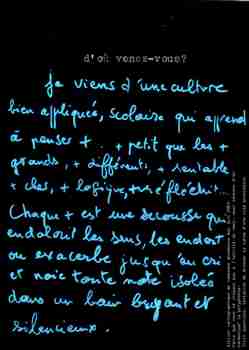 d'où venez-vous?
Je viens d'une culture
bien appliquée, scolaire qui apprend
à penser + . . + petit que les +
grands, + différents, + rentable
+ clos, + logique, très réfléchit...
Chaque + est une secousse qui
endolorit les sens, les endort
ou exacerbe jusqu'au cri
et noie toute note isolée
dans un bain bruyant et
silencieux.